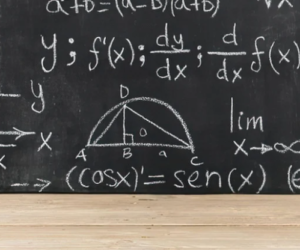 a+b=(a-b)(a+b)
y; f'(x); dy/dx; d/dx f(x)
- y
D
lim
x→∞
x
A B a C
→ (cosx)'= sen(x)